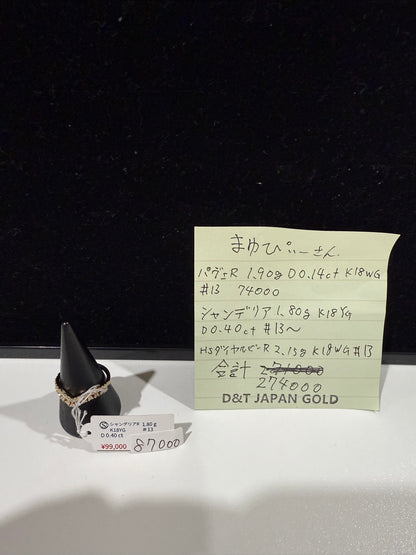 まゆぴぃーさん
パヴェR 1.90g D0.14ct K18WG
#13 74000
シャンデリア 1.80g K18YG
D0.40ct #13〜
HSダイヤルビーR 2.15g K18WG #13
合計 271000
274000
D&T JAPAN GOLD
シャンデリアR 1.80 g
K18YG #13
D 0.40 ct
¥99,000 87000